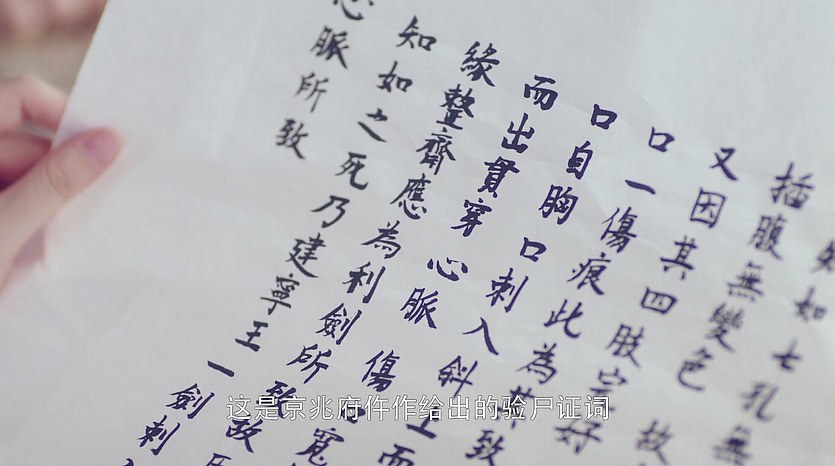 知如七孔無
插腹無變色故
又因其四肢完好
口一傷痕此為致
口自胸口刺入斜上而
而出貫穿心脈傷口寬
緣整齊應為利劍所致故
知如之死乃建寧王一劍刺
心脈所致
这是京兆府仵作给出的验尸证词